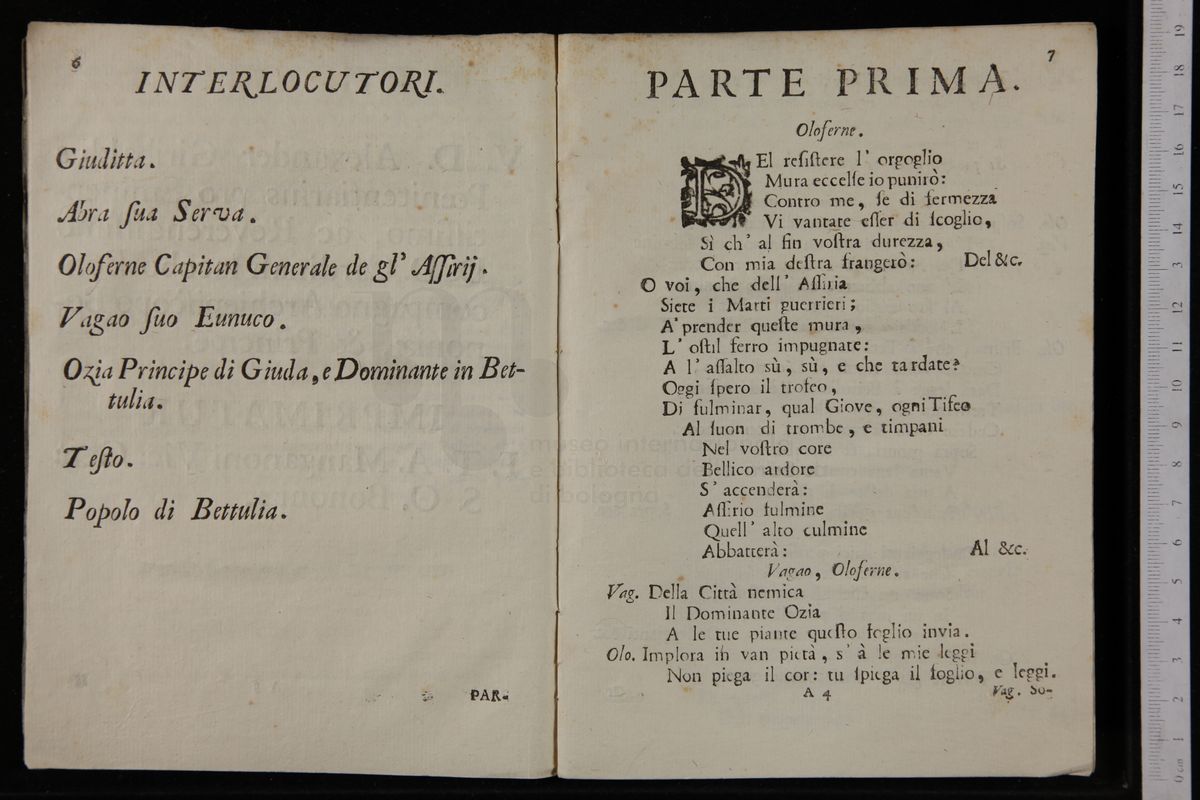 6
INTERLOCUTORI.
Giuditta.
Abra ſua Serva.
Oloferne Capitan Generale de gl' Aſſirij.
Vagao ſuo Eunuco.
Ozia Principe di Giuda, e Dominante in Bet-
tulia.
Teſto.
Popolo di Bettulia.
PAR-
7
PARTE PRIMA.
Oloferne.
DEl reſiſtere l' orgoglio
Mura eccelſe io punirò:
Contro me, ſe di fermezza
Vi vantate eſſer di ſcoglio,
Sì ch' al fin voſtra durezza,
Con mia deſtra frangerò: Del &c.
O voi, che dell' Aſſiria
Siete i Marti guerrieri;
A' prender queſte mura,
L' oſtil ferro impugnate:
A l' aſſalto sù, sù, e che tardate?
Oggi ſpero il trofeo,
Di fulminar, qual Giove, ogni Tifeo
Al ſuon di trombe, e timpani
Nel voſtro core
Bellico ardore
S' accenderà:
Aſſirio fulmine
Quell' alto culmine
Abbatterà: Al &c.
Vagao, Oloferne.
Vag. Della Città nemica
Il Dominante Ozia
A le tue piante queſto foglio invia.
Olo. Implora in van pietà, s' à le mie leggi
Non piega il cor: tu ſpiega il foglio, e leggi.
A 4
Vag. So-
museo internazionale
e biblioteca della
di bologna